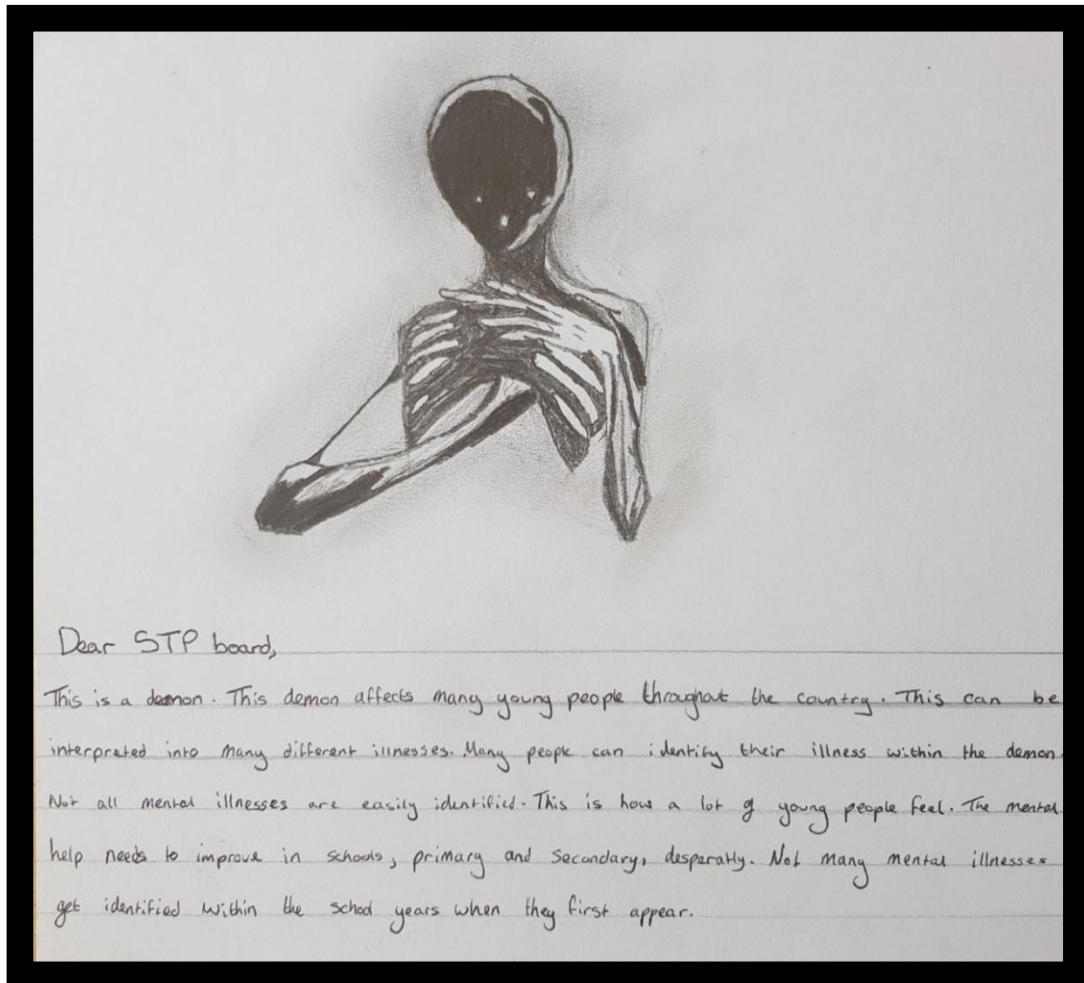 Dear STP board,
This is a demon. This demon affects many young people throughout the country. This can be
interpreted into many different illnesses. Many people can identify their illness within the demon.
Not all mental illnesses are easily identified. This is how a lot of young people feel. The mental
help needs to improve in schools, primary and secondary, desperatly. Not many mental illnesses
get identified within the school years when they first appear.